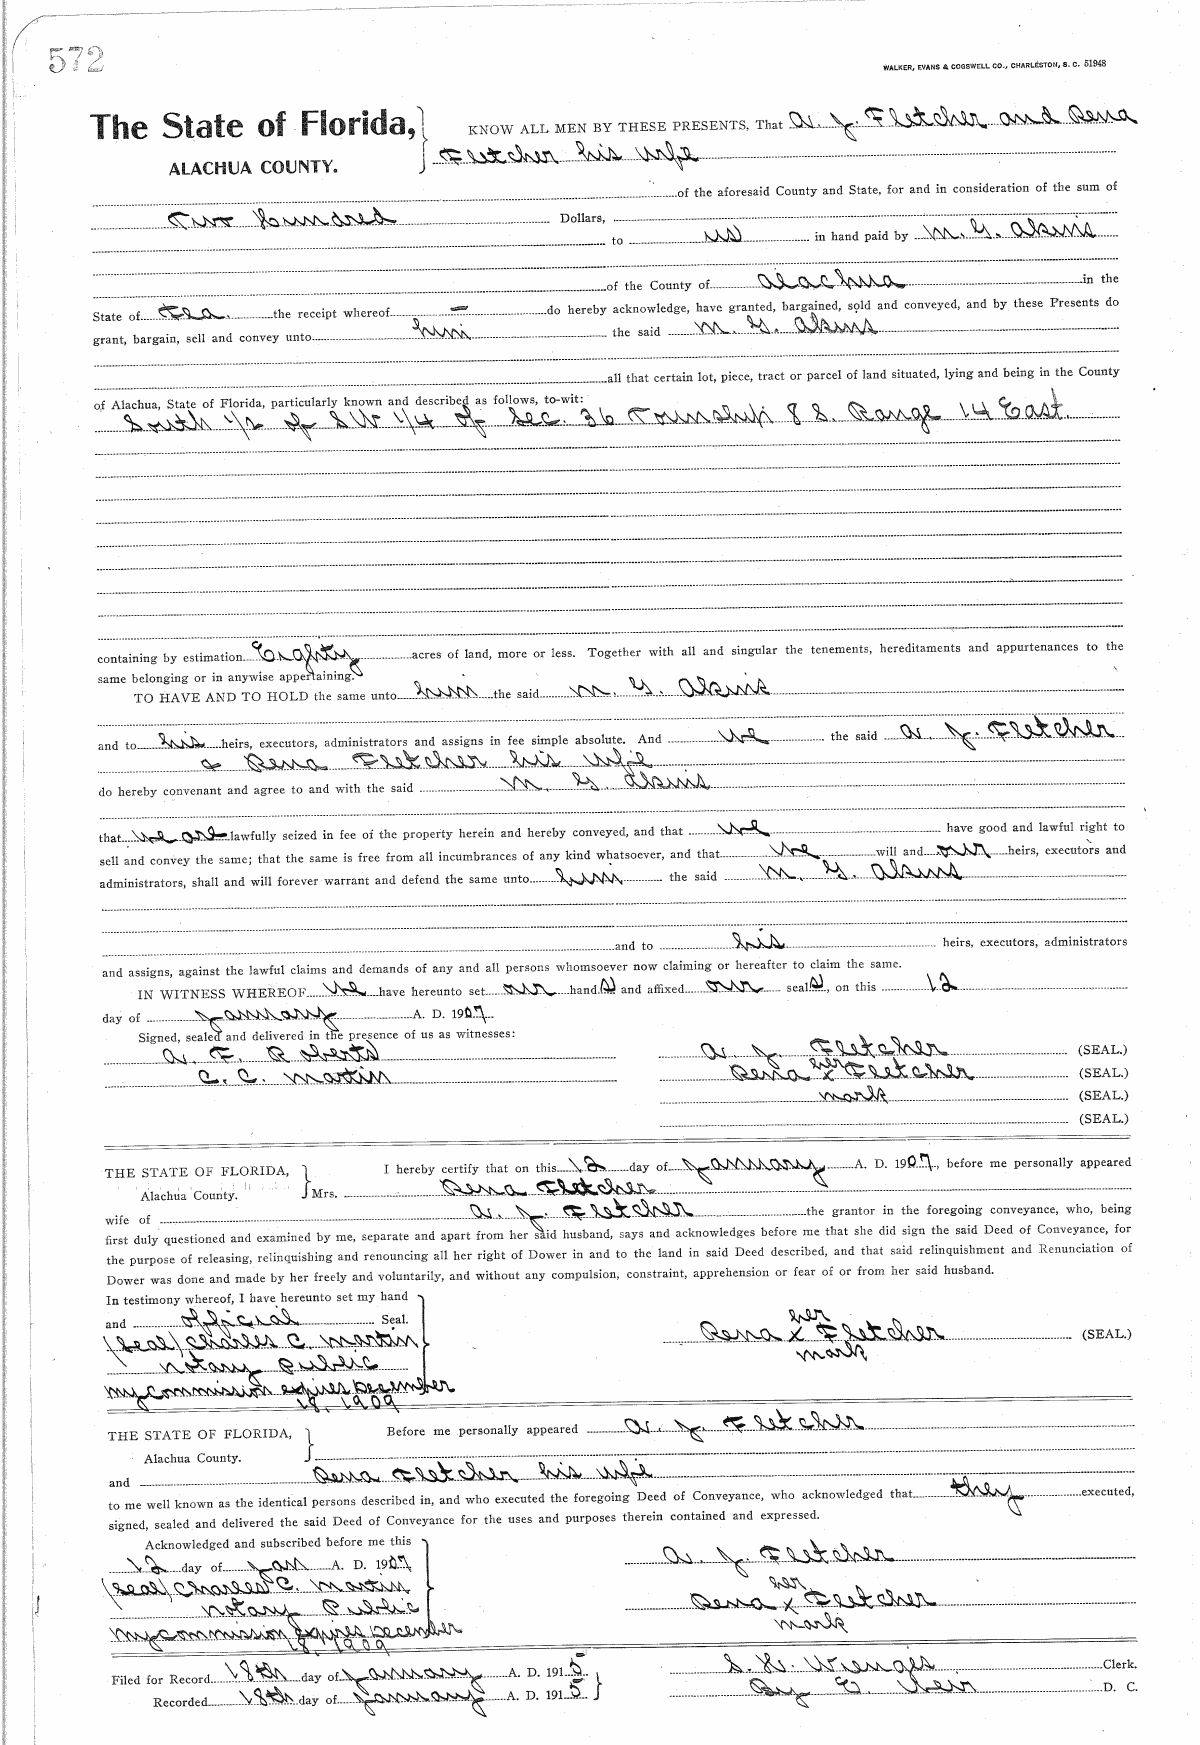 572
WALKER, EVANS & COGSWELL CO., CHARLESTON, S. C. 51948
The State of Florida,
ALACHUA COUNTY.
KNOW ALL MEN BY THESE PRESENTS, That A. J. Fletcher and Rena
Fletcher his wife
of the aforesaid County and State, for and in consideration of the sum of
Two hundred Dollars,
to us in hand paid by M. G. Akins
of the County of Alachua in the
State of Fla. the receipt whereof — do hereby acknowledge, have granted, bargained, sold and conveyed, and by these Presents do
grant, bargain, sell and convey unto him the said M. G. Akins
all that certain lot, piece, tract or parcel of land situated, lying and being in the County
of Alachua, State of Florida, particularly known and described as follows, to-wit:
South 1/2 of SW 1/4 of Sec. 36 Township 8 S. Range 14 East.
containing by estimation Eighty acres of land, more or less. Together with all and singular the tenements, hereditaments and appurtenances to the
same belonging or in anywise appertaining.
TO HAVE AND TO HOLD the same unto him the said M. G. Akins
and to his heirs, executors, administrators and assigns in fee simple absolute. And we the said A. J. Fletcher
& Rena Fletcher his wife
do hereby convenant and agree to and with the said M. G. Akins
that we are lawfully seized in fee of the property herein and hereby conveyed, and that we have good and lawful right to
sell and convey the same; that the same is free from all incumbrances of any kind whatsoever, and that we will and our heirs, executors and
administrators, shall and will forever warrant and defend the same unto him the said M. G. Akins
and to his heirs, executors, administrators
and assigns, against the lawful claims and demands of any and all persons whomsoever now claiming or hereafter to claim the same.
IN WITNESS WHEREOF we have hereunto set our hand s and affixed our seal s, on this 12
day of January A. D. 1907.
Signed, sealed and delivered in the presence of us as witnesses:
A. F. Roberts A. J. Fletcher (SEAL.)
C. C. Martin Rena her x Fletcher (SEAL.)
mark (SEAL.)
(SEAL.)
THE STATE OF FLORIDA, I hereby certify that on this 12 day of January A. D. 1907, before me personally appeared
Alachua County. Mrs. Rena Fletcher
wife of A. J. Fletcher the grantor in the foregoing conveyance, who, being
first duly questioned and examined by me, separate and apart from her said husband, says and acknowledges before me that she did sign the said Deed of Conveyance, for
the purpose of releasing, relinquishing and renouncing all her right of Dower in and to the land in said Deed described, and that said relinquishment and Renunciation of
Dower was done and made by her freely and voluntarily, and without any compulsion, constraint, apprehension or fear of or from her said husband.
In testimony whereof, I have hereunto set my hand
and official Seal. her
(Seal) Charles C. Martin Rena x Fletcher (SEAL.)
Notary Public mark
My commission expires December
18, 1909
THE STATE OF FLORIDA, Before me personally appeared A. J. Fletcher
Alachua County.
and Rena Fletcher his wife
to me well known as the identical persons described in, and who executed the foregoing Deed of Conveyance, who acknowledged that they executed,
signed, sealed and delivered the said Deed of Conveyance for the uses and purposes therein contained and expressed.
Acknowledged and subscribed before me this
12 day of Jan A. D. 1907 A. J. Fletcher
(Seal) Charles C. Martin her
Notary Public Rena x Fletcher
My commission expires December mark
18, 1909
Filed for Record 18th day of January A. D. 1915 S. H. Wienges Clerk.
Recorded 18th day of January A. D. 1915 By E. Weir D. C.